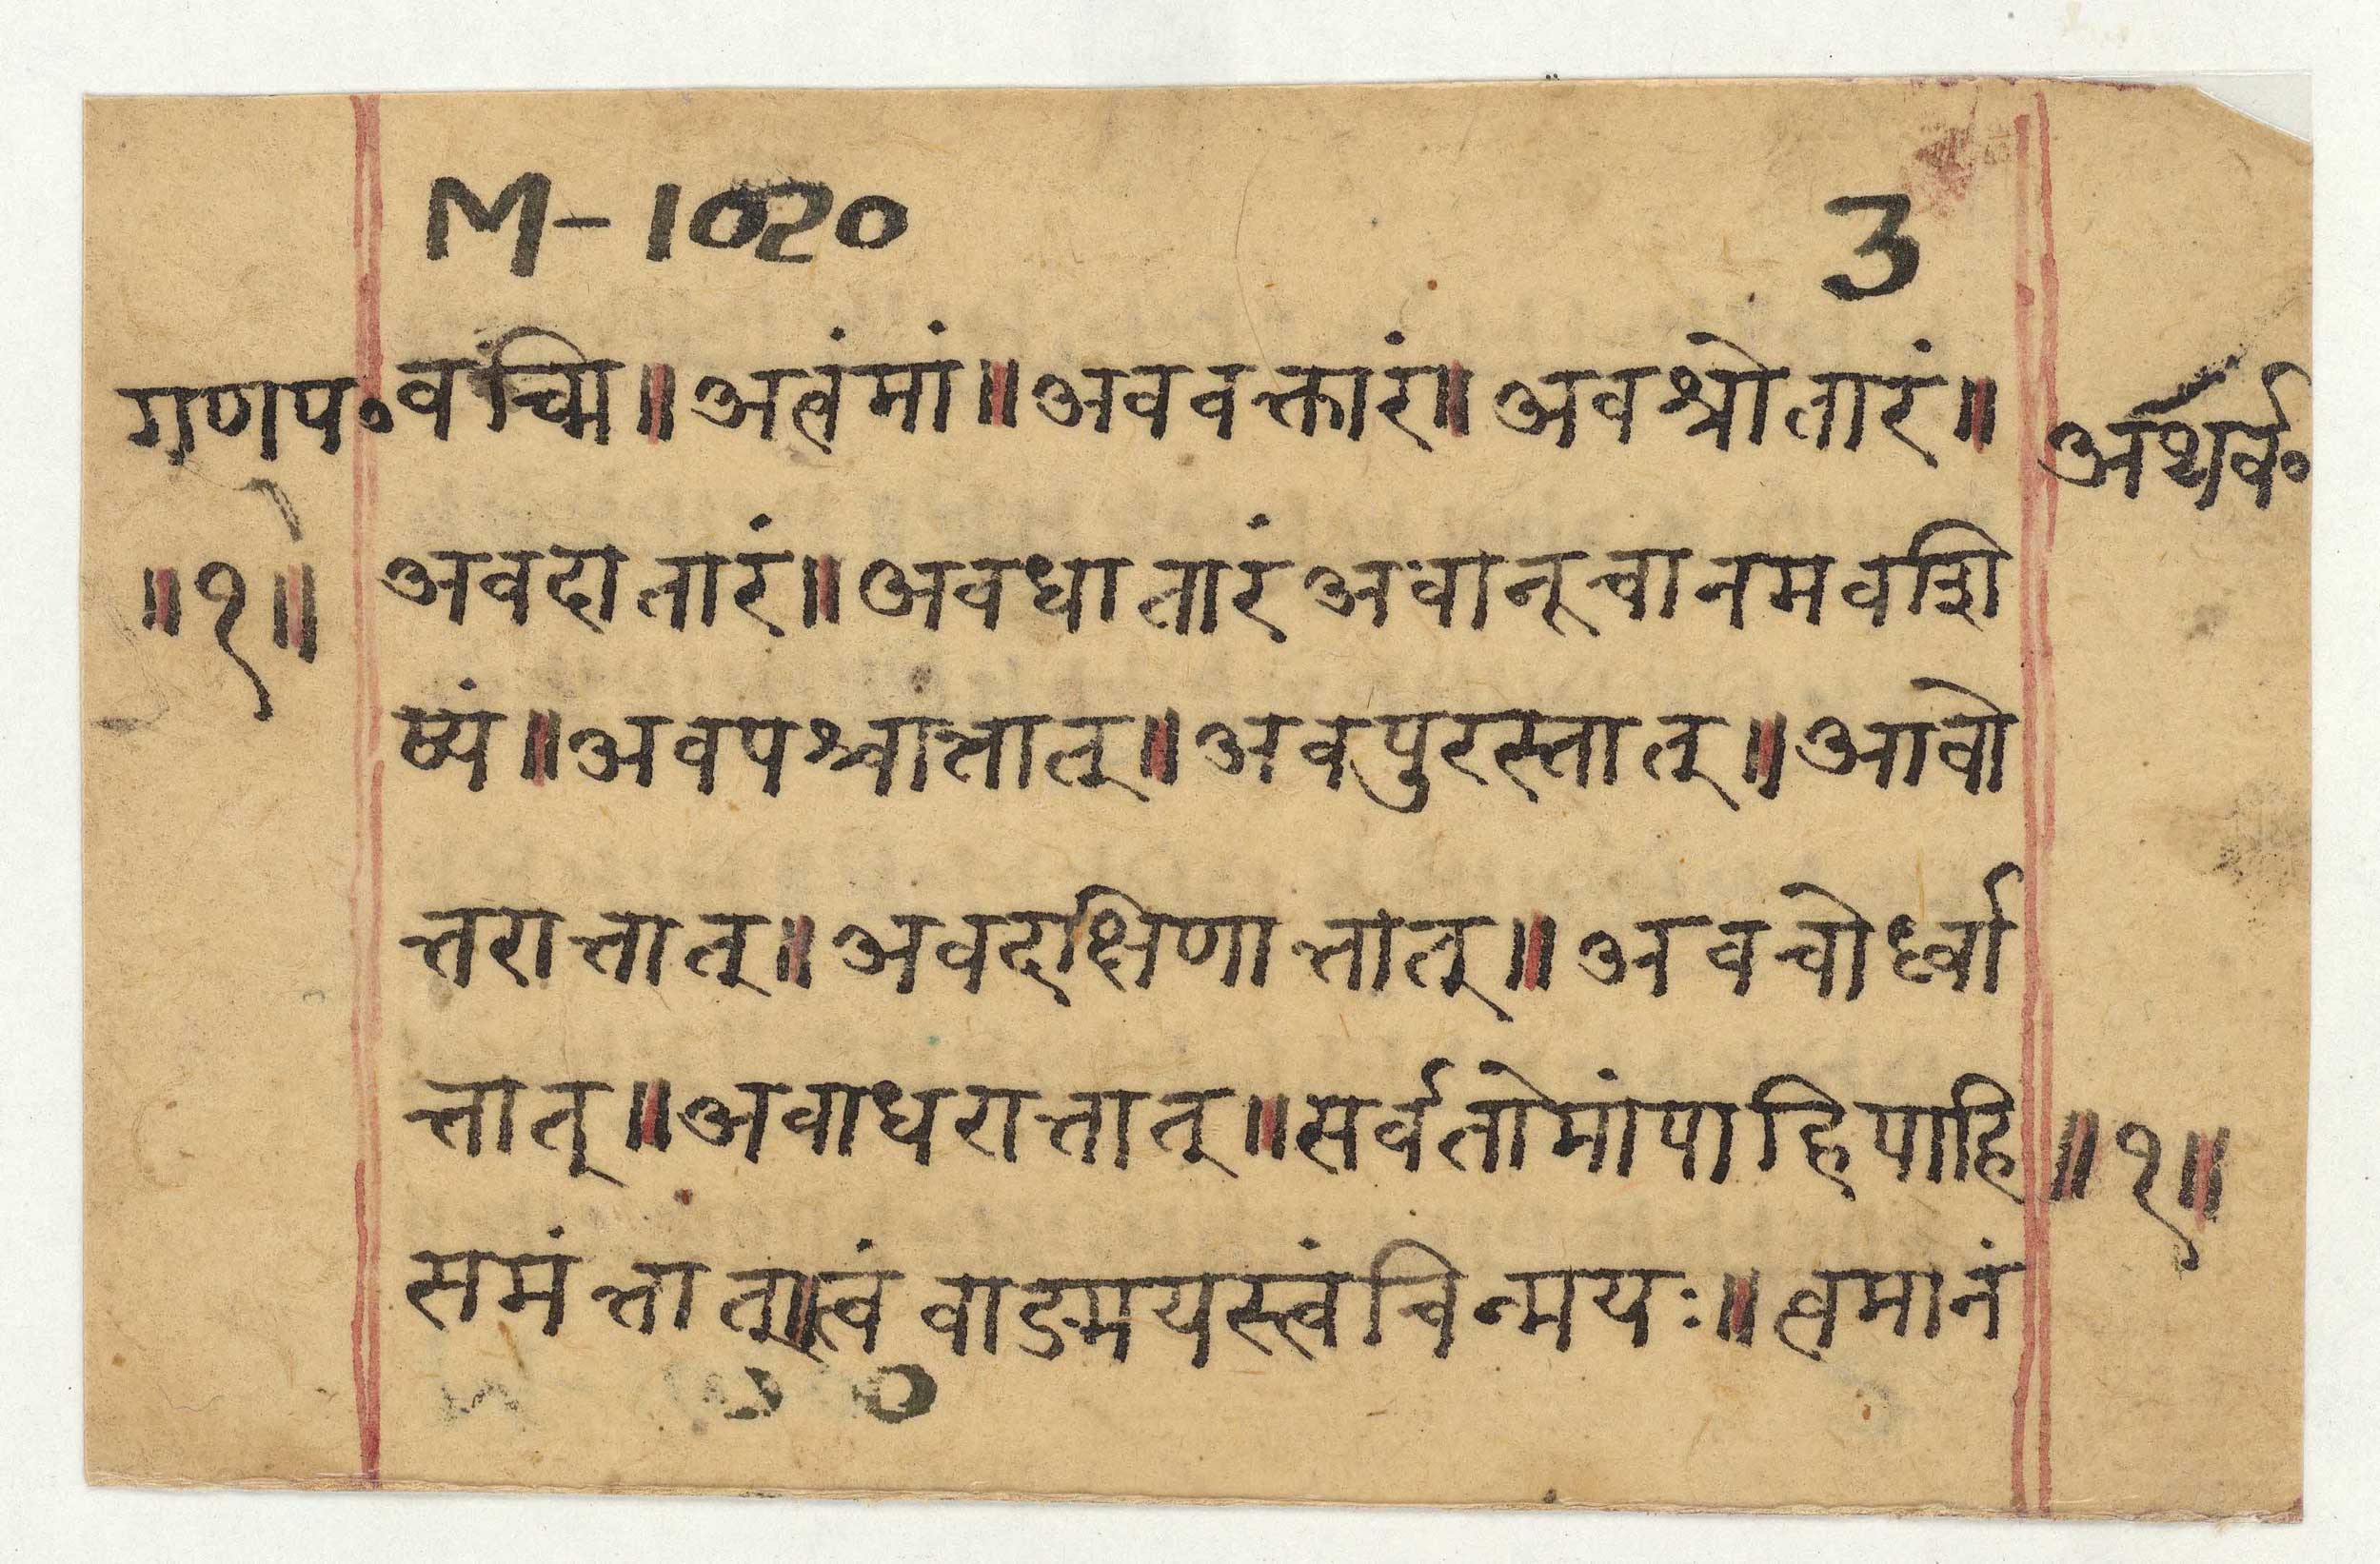 M-1020 3
गणप॰ वच्मि॥ अत्वंमां॥ अववक्तारं॥ अवश्रोतारं॥ अथर्व॰
॥१॥ अवदातारं॥ अवधातारं अवानूचानमवशि
ष्यं॥ अवपश्चात्तात्॥ अवपुरस्तात्॥ आवो
त्तरात्तात्॥ अवदक्षिणात्तात्॥ अवचोर्ध्वा
त्तात्॥ अवाधरात्तात्॥ सर्वतोमांपाहिपाहि ॥१॥
समंत्तात्॥ त्वं वाङ्मयस्त्वंचिन्मयः॥ त्वमानं